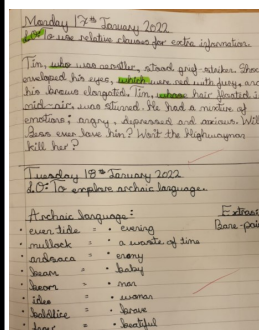 Monday 17th January 2022
LO: To use relative clauses for extra information.
Tim, who was ostler, stood grief-striken. Shock
enveloped his eyes, which were red with fury, and
his brows elongated. Tim, whose hair floated in
mid-air, was stunned. He had a mixture of
emotions: angry, depressed and anxious. Will
Bess ever love him? Won't the Highwayman
kill her?
Tuesday 18th January 2022
LO: To explore archaic language.
Archaic language:
• even tide = • evening
• mullock = • a waste of time
• andsaca = • enemy
• bearn = • baby
• beorn = • man
• ides = • woman
• baldlice = • brave
= • beatiful
Bare-pai